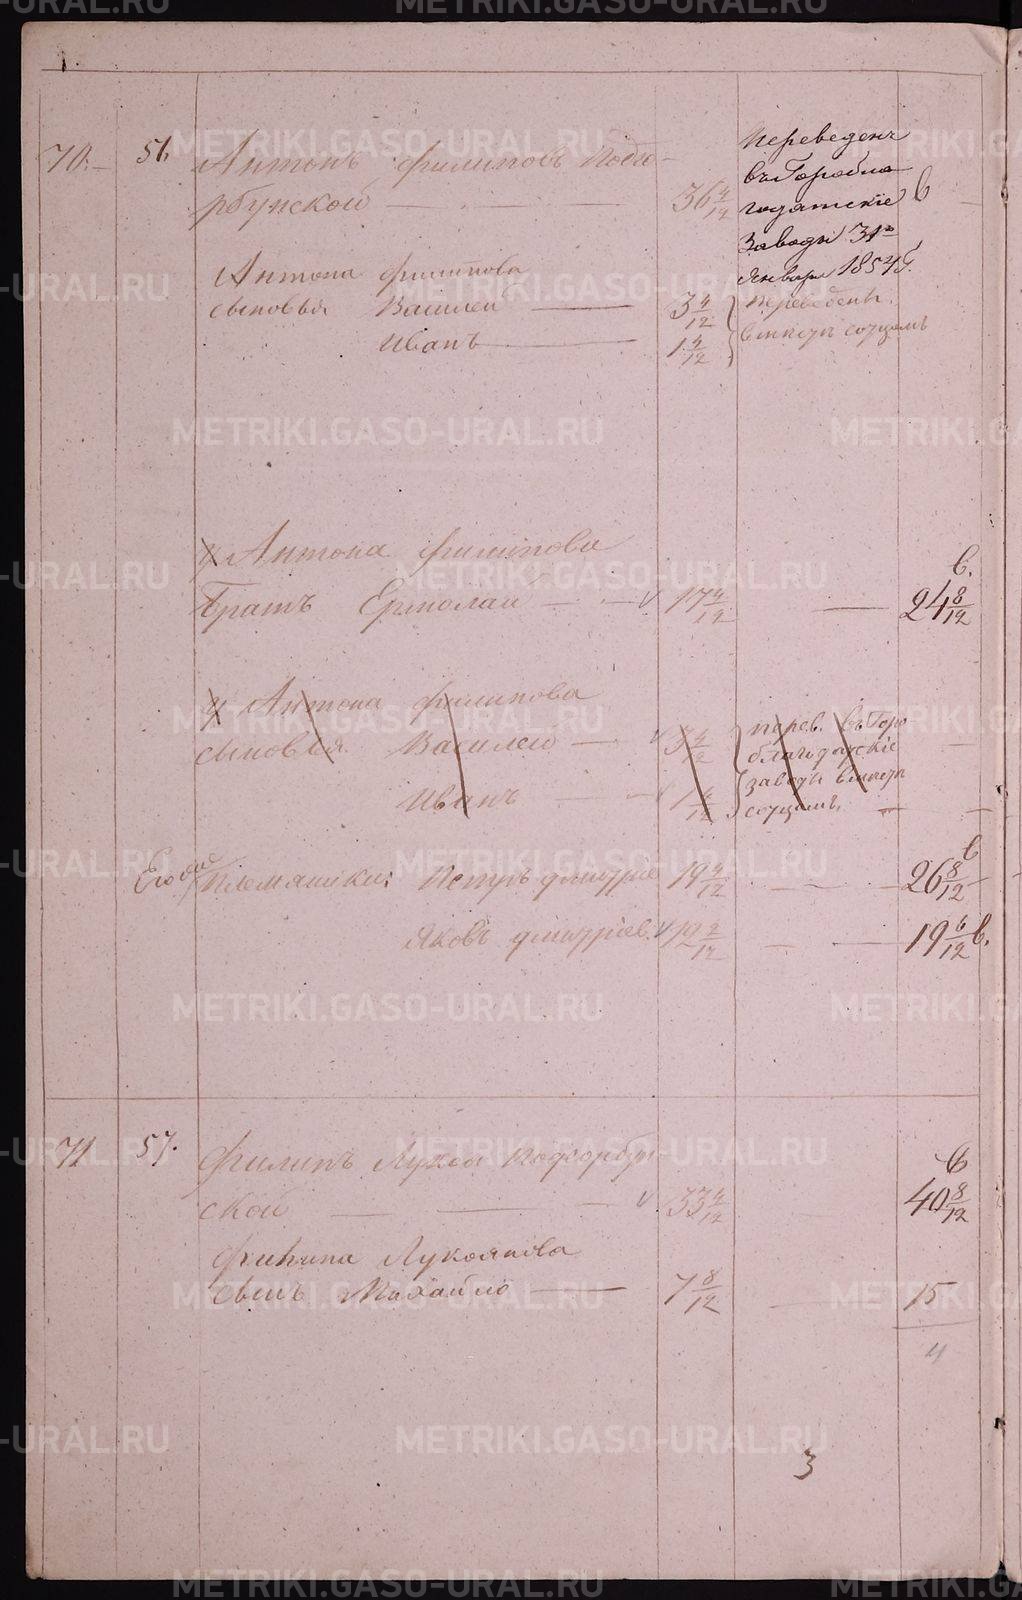 70. 56. Антонъ Филиповъ Подго-
рбунской — — — 36 4/12
Переведенъ
въ Горобла-
годатские
Заводы 31го
Января 1854 г.
в
Антона Филипова
сыновья Василей — 3 4/12 переведены
Иванъ — 1 4/12 вместе с отцемъ
Антона Филипова
в.
Братъ Ермолай — — 17 4/12 — 24 8/12
Антона Филипова
сыновья Василей — 3 4/12 перев. въ Горо
благодатские
Иванъ — — 1 4/12 заводы вместе
с отцемъ. — —
в
Его же племяники: Петръ Дмитрие 19 4/12 — — 26 8/12
Яковъ Дмитриев. 12 2/12 — — 19 6/12 в.
71 57. Филипъ Лукоя Подгорбун-
в
ской — — — 33 4/12 — 40 8/12
Филипа Лукоянова
сынъ Михайло — 7 8/12 — 15
4
3
METRIKI.GASO-URAL.RU